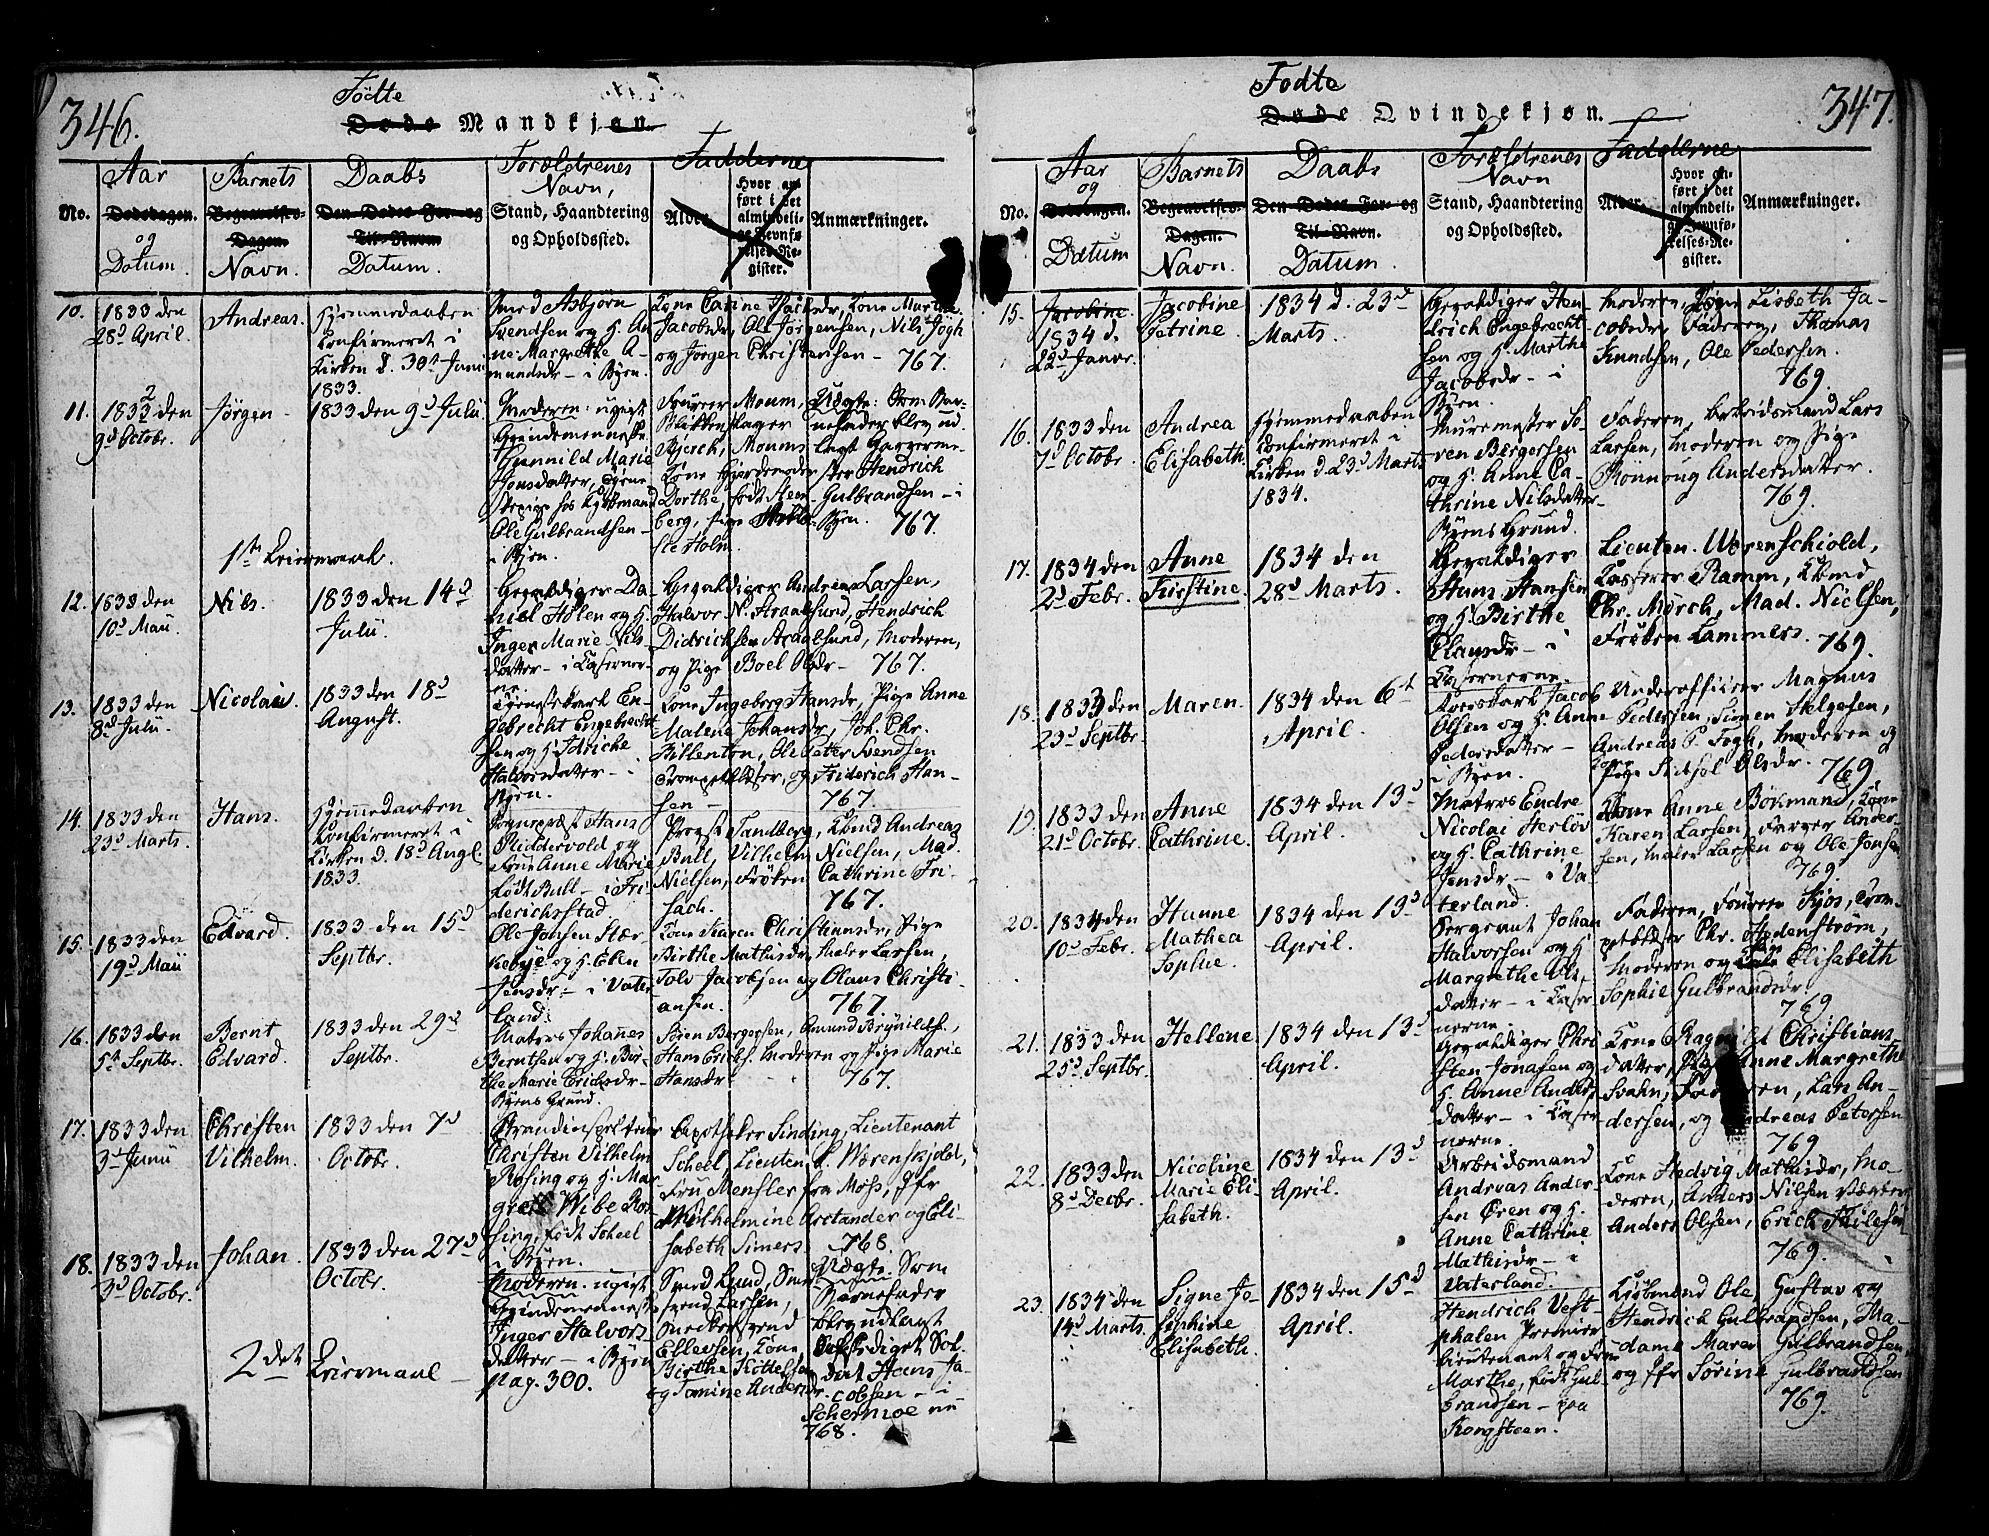 346.
Födte
Døde Mandkjøn.
Aar
Dødsdagen.
og
Datum.
No.
Barnets
Begravelses-
Dagen.
Navn.
Daabs
Den Dødes For- og
Til-Navn
Datum.
Forældrenes
Navn,
Stand, Haandtering
og Opholdssted.
Fadderne
Alder.
Hvor an-
ført i det
almindeli-
ge Jevnfø-
relses-Re-
gister.
Anmærkninger.
10.
1833 den
28d April.
Andreas.
Hjemmedaaben
Confirmeret i
Kirken d. 30te Juni
1833.
Smed Asbjörn
Svendsen og H. An
ne Margrethe A-
mundsdr - i Byen.
Kone Carine
Jacobsdr, Ole Jørgensen, Nils Fogh
og Jørgen Christensen -
767.
11.
1832 den
9d Octobr.
Jörgen -
1833 den 9d Julii
Moderen: ugigt
Qvindemenneske
Gunnild Marie
Hansdatter, tjene-
stepige hos Kjøbmand
Ole Gulbrandsen -
i Byen.
Fourer Moum,
Blikkenslager
Bjerch, Moums
Kone
Dorthe født Steen-
berg, Pige
Holm.
Udgte: Som Bar-
nefader blev ud-
lagt
Hendrich
Gulbrandsen - i
Byen. 767.
1ste Leiermaal.
12.
1833 den
10d Maii.
Nils.
1833 den 14d
Julii.
Gevaldiger Da-
niel Holen og H.
Inger Marie Nils-
datter - i Caserner-
ne.
Gevaldiger Andreas Larsen,
Halvor N. Straalsund, Hendrich
Didrichsen Straalsund, Moderen,
og Pige Boel Olsdr - 767.
13.
1833 den
8d Julii.
Nicolai.
1833 den 18d
August.
Tjenestekarl En-
gebrecht Engebrecht-
sen og H. Idriche
Halvorsdatter - i
Byen.
Kone Ingeborg Hansdr, Pige Anne
Malene Johansdr, Joh. Chr.
Billenton, Ole Peter Svendsen
Trompetblæser, og Friderich Han-
sen - 767.
14.
1833 den
23d Marts.
Hans.
Hjemmedaaben
Confirmeret i
Kirken d. 18d Augt.
1833.
Sogneprest Hans
Riddervold og
Frue Anne Marie
født Bull - i Fri-
derichstad.
Provst Tandberg, Kbmd Andreas
Bull, Vilhelm Nielsen, Mad.
Nielsen, Frøken Cathrine Fri-
sach. 767.
15.
1833 den
19d Maii
Edvard.
1833 den 15d
Septbr.
Ole Jonsen Stær-
kebye og H. Elen
Jensdr - i Vater-
land.
Kone Karen Christiansdr, Pige
Birthe Mathisdr, Maler Larsen,
Tolv Jacobsen og Olaus Christi-
ansen. 767.
16.
1833 den
5te Septbr.
Bernt
Edvard.
1833 den 29d
Septbr.
Matros Johannes
Berntsen og H. Bir-
the Marie Ericksdr -
Byens Grund.
Sören Bergersen, Amund Brynildsf.,
Hans Ericks. Moderen og Pige Marie
Hansdr 767.
17.
1833 den
3d Junii
Christen
Vilhelm.
1833 den 7d
Octobr.
Brandinspecteur
Christen Vilhelm
Rosing og H. Mar-
grete Wibe Ro-
sing, født Scheel
i Byen.
Apotheker Sinding, Lieutenant
Scheel Lieuten. d. Wørenskjold,
Fru Mensler fra Moss, Jfr
Wilhelmine Arstander og Eli-
sabeth Simers 768.
18.
1833 den
3d Octobr.
Johan.
1833 den 27d
Octobr.
Moderen: ugivt
Qvindemenneske
Inger Halvors-
datter - i Byen
pag. 300.
Smed Lund, Smed-
svend Larsen,
Snedkersvend
Ellevsen, Kone
Birthe Kittelsen
og Tomine Andersdr.
Udgte. Som
Barnefader
Jacobsen - i
768.
2det Leiermaal -
347.
Födte
Døde Qvindekjøn.
No.
Aar
og
Dødsdagen.
Datum
Barnets
Begravelses-
Dagen.
Navn.
Daabs
Den Dødes For- og
Til-Navn.
Datum.
Forældrenes
Navn
Stand, Haandtering
og Opholdssted.
Fadderne
Alder.
Hvor an-
ført i det
almindeli-
ge Jevnfø-
relses-Re-
gister.
Anmærkninger.
15.
Jacobine
1834 d.
22d Januar.
Jacobine
Petrine.
1834 d. 23d
Marts.
Gevaldiger Hen-
drich Engebrecht-
sen og H. Marthe
Jacobsdr - i
Byen.
Moderen, Pige Lisbeth Ja-
cobsdr, Faderen, Thomas
Knudsen, Ole Pedersen.
769.
16.
1833 den
7d Octobr.
Andrea
Elisabeth.
Hjemmedaaben
Confirmeret i
Kirken d. 23d Marts
1834.
Muremester Sö-
ren Bergersen
og H. Anne Ca-
thrine Nilsdatter -
Byens Grund.
Faderen, Arbeidsmand Lars
Larsen, Moderen og Pige
Rönnoug Andersdatter.
769.
17.
1834 den
2d Febr.
Anne
Kirstine.
1834 den
28d Marts.
Gevaldiger
Hans Hansen
og H. Birthe
Clausdr - i
Casernerne.
Lieuten. Wørenschiold,
Kasserer Ramm, Kbmd
Chr. Mörch, Mad. Nielsen,
Fröken Lammers. 769.
18.
1833 den
23d Septbr.
Maren.
1834 den 6te
April.
Jacob
Olsen og H. Anne
Pedersdatter -
i Byen.
Underofficeer Magnus
Pedersen, Simen Helgesen,
Andreas P. Fogh, Moderen og
Pige Olsdr. 769.
19.
1833 den
21d Octobr.
Anne
Cathrine.
1834 den 13d
April.
Matros Endre
Nicolai Herlöv
og H. Cathrine
Jensdr - i Va-
terland.
Kone Anne Bökmand, Kone
Karen Larsen, Farver Ander-
sen, Maler Larsen og Ole Jonsen
769.
20.
1834 den
10d Febr.
Hanne
Mathea
Sophie.
1834 den 13d
April.
Sergeant Johan
Halvorsen og H.
Margrethe Ols-
datter - i Caser-
nerne.
Faderen, Fourer Syös, Trom-
petblæser Chr. Hedenström,
Moderen og Pige Elisabeth
Sophie Gulbrandsdr.
769
21.
1833 den
25d Septbr.
Hellene
1834 den 13d
April.
Gevaldiger Chri-
sten Jonasen og
H. Anne Anders-
datter - i Caser-
nerne.
Kone Ragnild Christians-
datter, Anne Margrethe
Svahn, Lars An-
dersen, og Andreas Petersen
769
22.
1833 den
8d Decbr.
Nicoline
Marie Eli-
sabeth.
1834 den 13d
April.
Arbeidsmand
Andreas Ander-
sen Ören og H.
Anne Cathrine
Mathisdr - i
Vaterland.
Kone Hedvig Mathisdr, Mo-
deren, Anders Nilsen Vægter,
Anders Olsen, Erich Thilesen
769.
23.
1834 den
14d Marts.
Signe Jo-
sephine
Elisabeth.
1834 den 15d
April.
Hendrich Vest-
phalen Premier-
lieutenant og Frue
Marthe, født Gul-
brandsen - paa
Kongsteen.
Kjöbmend Ole, Gustav og
Hendrich Gulbrandsen, Ma-
dame Maren Gulbrandsen,
og Jfr Sörine Gulbrandsen
769.